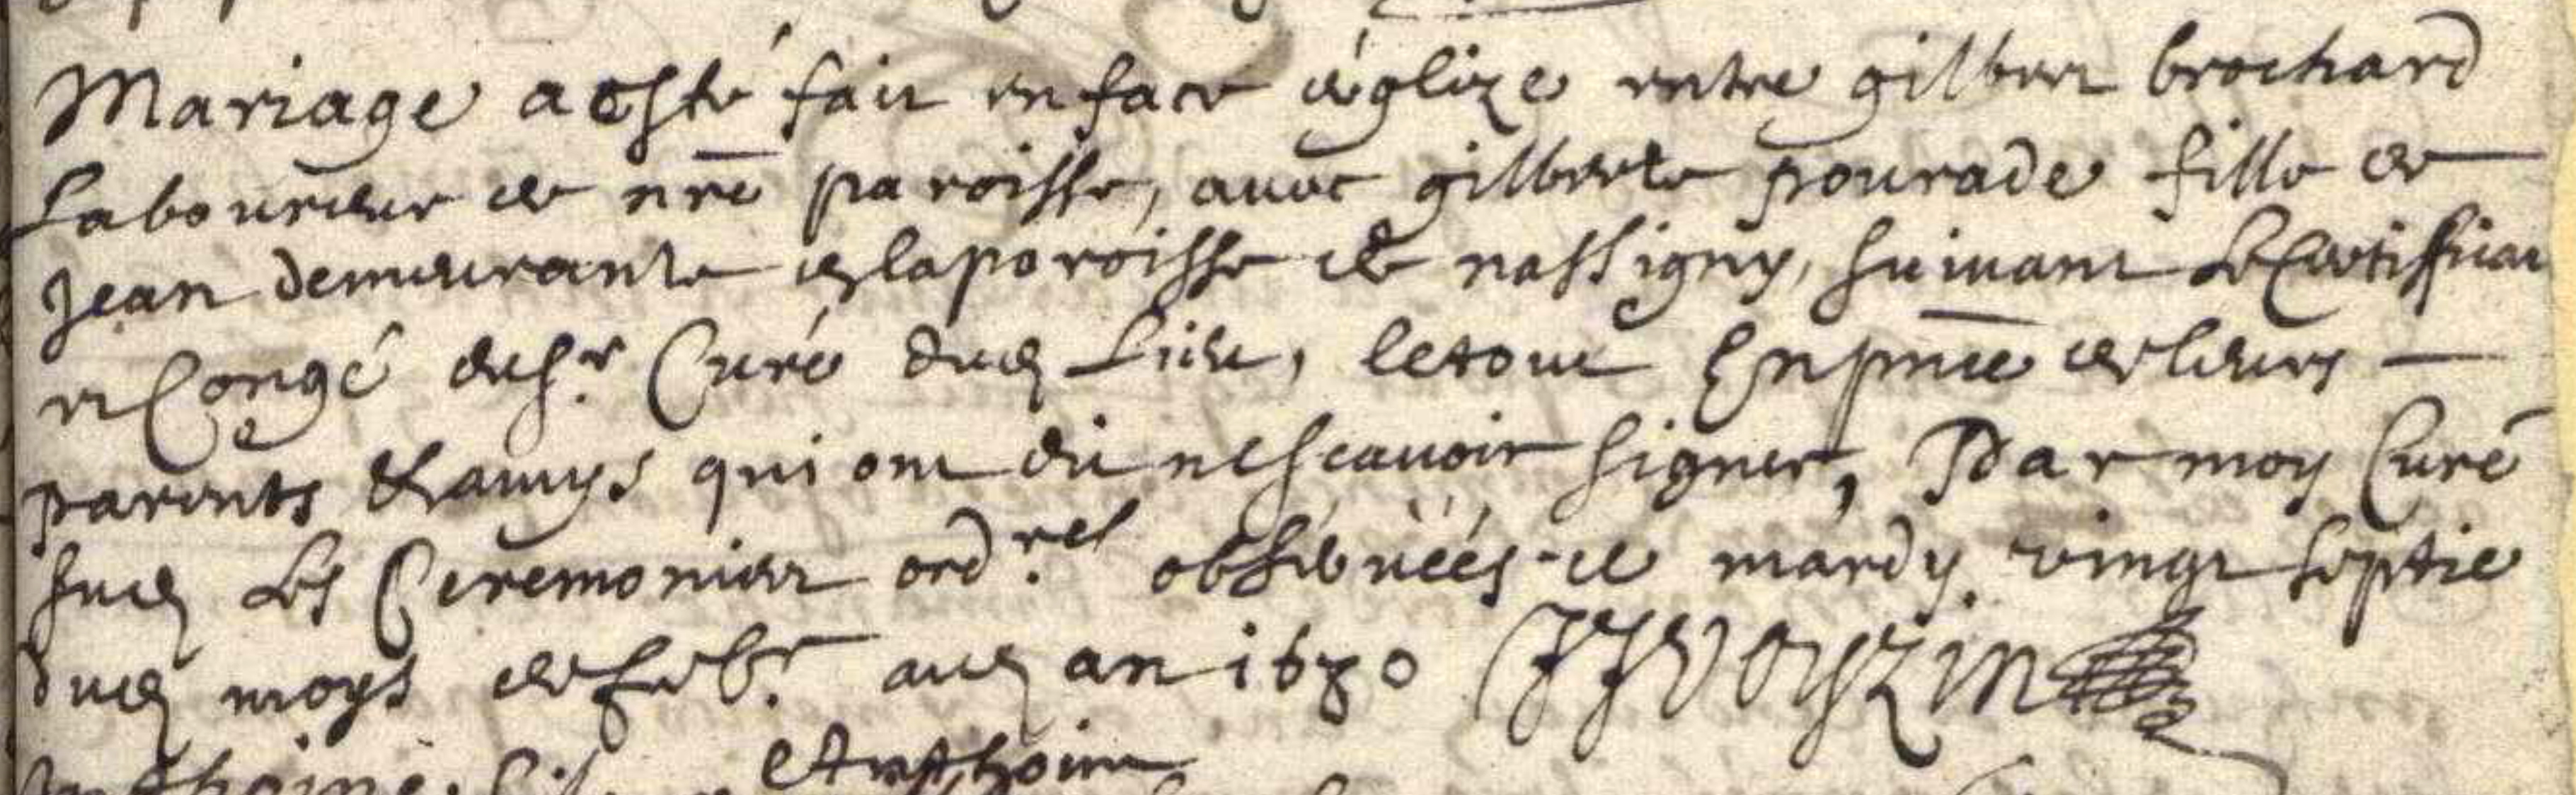 Mariage a esté fait en face d'églize entre gilbert brochard
Laboureur de nre paroisse, avec gilberte pourade fille de
Jean demeurante en la paroisse de nassigny, suivant Le Certifficat
et Congé du sr Curé dud Lieu, le tout En pnce de leurs
parents & amys qui ont dit ne scavoir signer, Par moy Curé
sud Les Ceremonies ordres observéés ce mardy vingt septie
dud moys de febr aud an 1680 JJVoyzin
Anthoine